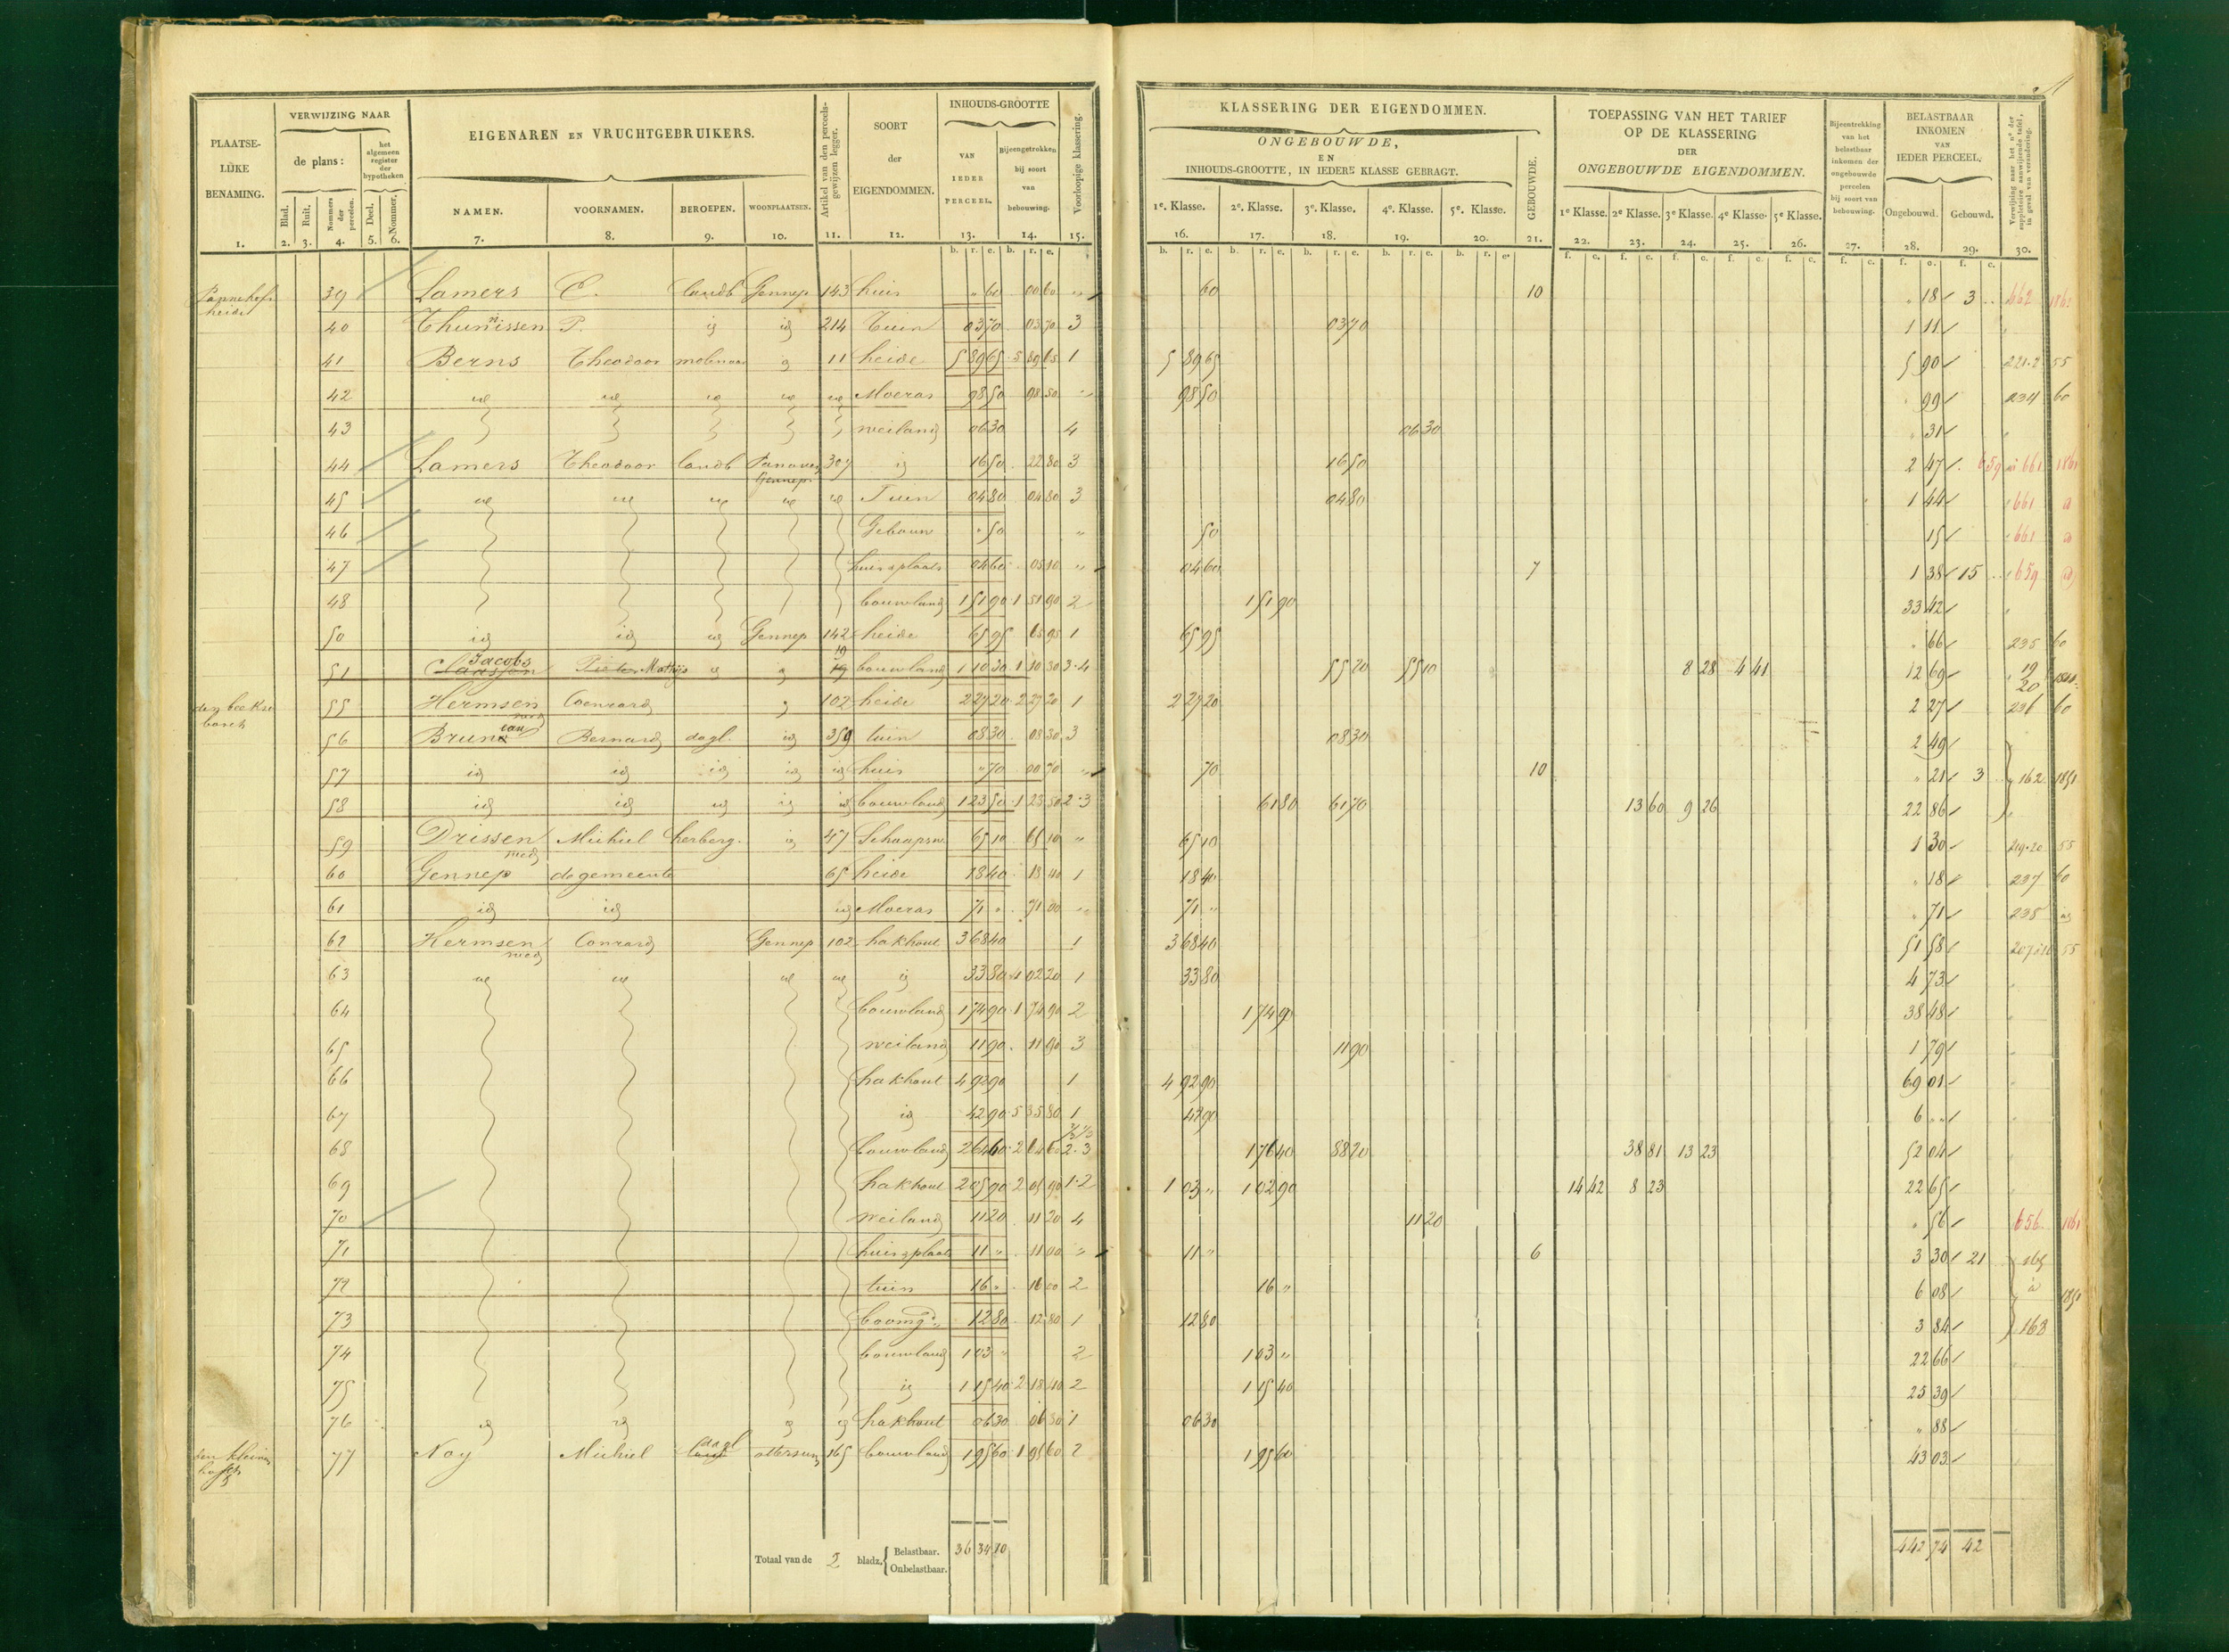 PLAATSE-
LIJKE
BENAMING.
1.
VERWIJZING NAAR
de plans:
het
algemeen
register
der
hypotheken
Blad.
Ruit.
Nommers
der
perceelen.
Deel.
Nommer.
2. 3. 4. 5. 6.
EIGENAREN EN VRUCHTGEBRUIKERS.
NAMEN. VOORNAMEN. BEROEPEN. WOONPLAATSEN.
7. 8. 9. 10.
Artikel van den perceels-
gewijzen legger.
11.
SOORT
der
EIGENDOMMEN.
12.
INHOUDS-GROOTTE
VAN
IEDER
PERCEEL.
Bijeengetrokken
bij soort
van
bebouwing.
13. 14.
Voorloopige klassering.
15.
b. r. e. b. r. e.
KLASSERING DER EIGENDOMMEN.
ONGEBOUWDE,
EN
INHOUDS-GROOTTE, IN IEDERE KLASSE GEBRAGT.
GEBOUWDE.
1e. Klasse. 2e. Klasse. 3e. Klasse. 4e. Klasse. 5e. Klasse.
16. 17. 18. 19. 20. 21.
TOEPASSING VAN HET TARIEF
OP DE KLASSERING
DER
ONGEBOUWDE EIGENDOMMEN.
1e Klasse. 2e Klasse. 3e Klasse. 4e Klasse. 5e Klasse.
22. 23. 24. 25. 26.
Bijeentrekking
van het
belastbaar
inkomen der
ongebouwde
perceelen
bij soort van
bebouwing.
27.
BELASTBAAR
INKOMEN
VAN
IEDER PERCEEL.
Ongebouwd. Gebouwd.
28. 29.
Verwijzing naar het no der
suppletoire aanwijzende tafel,
in geval van verandering.
30.
39 Lamers C. landb Gennep 143 huis " 60 00 60 " 60 10 " 18 3 " 662
heide
40 Thunnissen P. id id 214 Tuin 03 70 03 70 3 03 70 1 11
41 Berns Theodoor molenaar id 11 heide 5 89 65 5 89 65 1 5 89 65 5 90 55
42 id id id id id Moeras 98 50 98 50 " 98 50 " 99 234 60
43 weiland 06 30 4 06 30 " 31
44 Lamers Theodoor landb Gennep 307 id 16 50 22 80 3 16 50 2 47 659 a 661 1861
45 id id id id id Tuin 04 80 04 80 3 04 80 1 44 661
46 Gebouw " 50 " 50 " 15 661
47 huis &plaats 04 60 05 10 " 04 60 7 1 38 15 " 659
48 bouwland 1 51 90 1 51 90 2 1 51 90 33 42
50 id id id Gennep 142 heide 65 95 65 95 1 65 95 " 66 235 60
51 Jacobs Mathijs id id 19 bouwland 1 10 30 1 10 30 3.4 55 20 55 10 8 28 4 41 12 69 19
20
55 Hermsen Coenrard id 102 heide 2 27 20 2 27 20 1 2 27 20 2 27 236 60
56 Bernard dagl. id 359 tuin 08 30 08 30 3 08 30 2 49
57 id id id id id huis " 70 00 70 " 70 10 " 21 3 " 162 1851
58 id id id id id bouwland 1 23 50 1 23 50 2.3 61 80 61 70 13 60 9 26 22 86
59 Drissen Michiel herberg. id 47 65 10 65 10 " 65 10 1 30 219.20 55
60 Gennep de gemeente 65 heide 18 40 18 40 1 18 40 " 18 237 60
61 id id id Moeras 71 " 71 00 " 71 " " 71 238 id
62 Hermsen Conrard Gennep 102 hakhout 3 68 40 1 3 68 40 51 58 55
63 id id id id id 33 80 4 02 20 1 33 80 4 73
64 bouwland 1 74 90 1 74 90 2 1 74 90 38 48
65 weiland 11 90 11 90 3 11 90 1 79
66 hakhout 4 92 90 1 4 92 90 69 01
67 id 42 90 5 35 80 1 42 90 6 "
68 bouwland 2 64 60 2 64 60 2.3 1 76 40 88 20 38 81 13 23 52 04
69 hakhout 2 05 90 2 05 90 1.2 1 03 " 1 02 90 14 42 8 23 22 65
70 weiland 11 20 11 20 4 11 20 " 56 656 1861
71 huis &plaats 11 " 11 00 " 11 " 6 3 30 21 165
72 tuin 16 " 16 00 2 16 " 6 08 a 1851
73 boomgd 12 80 12 80 1 12 80 3 84 168
74 bouwland 1 03 " 2 1 03 " 22 66
75 id 1 15 40 2 18 40 2 1 15 40 25 39
76 id id id id hakhout 06 30 06 30 1 06 30 " 88
den kleinen
77 Noy Michiel dagl ottersum 165 bouwland 1 95 60 1 95 60 2 1 95 60 43 03
Totaal van de 2 bladz. Belastbaar. 36 34 80
Onbelastbaar.
442 74 42